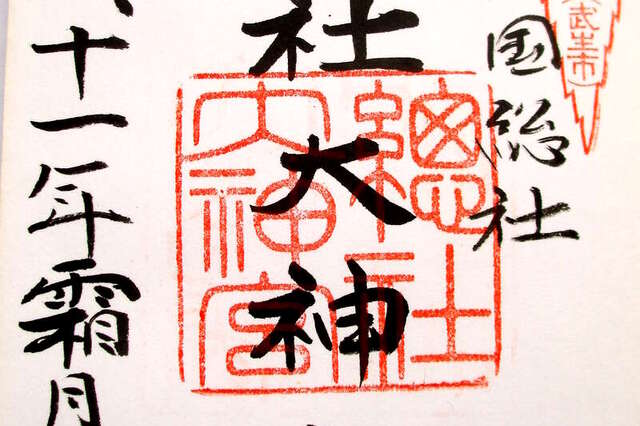 武生市
国総社
社大神
總社
大神宮
十一年霜月